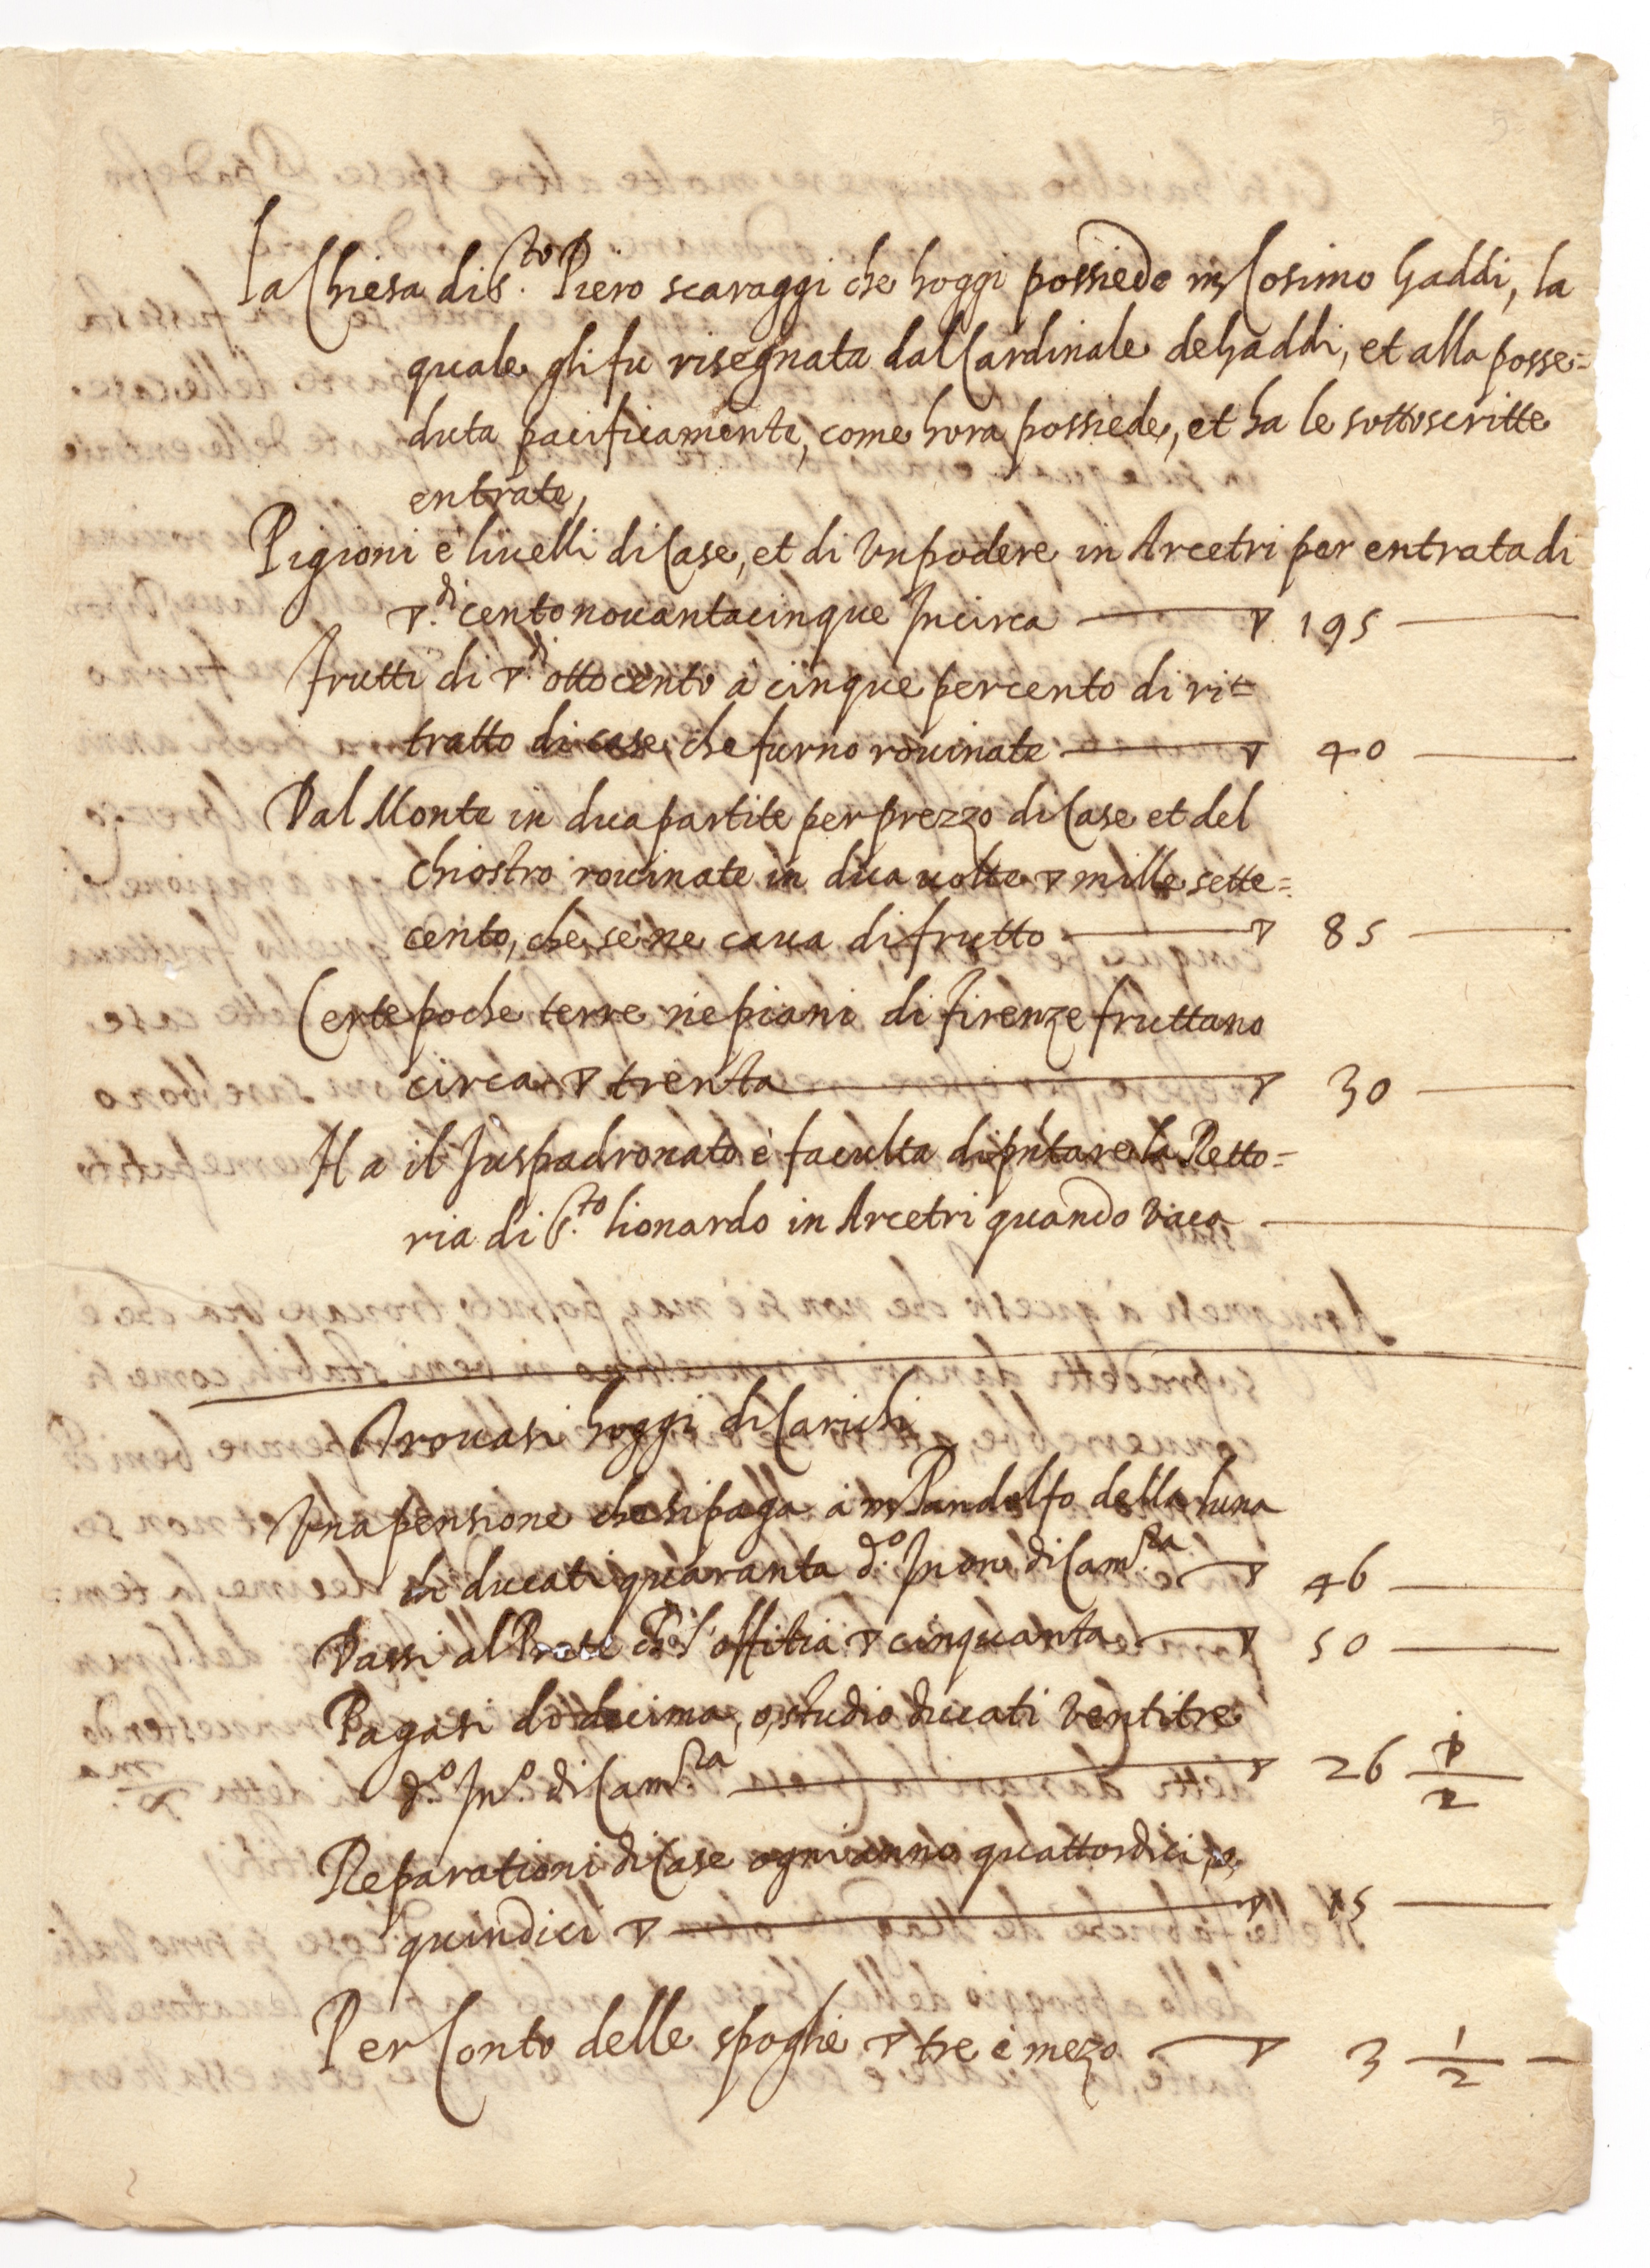 La Chiesa di S.to Piero scaraggi che hoggi possiede m Cosimo Gaddi, la
quale gli fu risegnata dal Cardinale de Gaddi, et alla posse=
duta pacificamente, come hora possiede, et ha le sottoscritte
entrate,
Pigioni e livelli di Case, et di Un podere in Arcetri per entrata di
▽.di cento novantacinque Incirca ▽ 195
frutti di ▽.di ottocento a cinque per cento di ri=
tratto di case che furno rovinate ▽ 40
Dal Monte in dua partite per prezzo di Case et del
chiostro rovinate in dua volte ▽ mille sette=
cento, che se ne cava di frutto ▽ 85
Certe poche terre ne piani di firenze fruttano
circa ▽ trenta ▽ 30
Ha il Juspadronato e faculta di putare la Retto=
ria di S.to Lionardo in Arcetri quando vaca
Trovasi hoggi di Carichi
Una pensione che si paga a m Pandolfo della Luna
di ducati quaranta d.o In oro di Cam.ra ▽ 46
Dassi al Prete che l'offitia ▽ cinquanta ▽ 50
Pagasi di decima, o, studio ducati Ventitre
d.o In.o di Cam.ra ▽ 26 1/2
Reparationi di Case ogni anno quattordici, o,
quindici ▽ ▽ 15
Per Conto delle spoglie ▽ tre e mezo ▽ 3 1/2